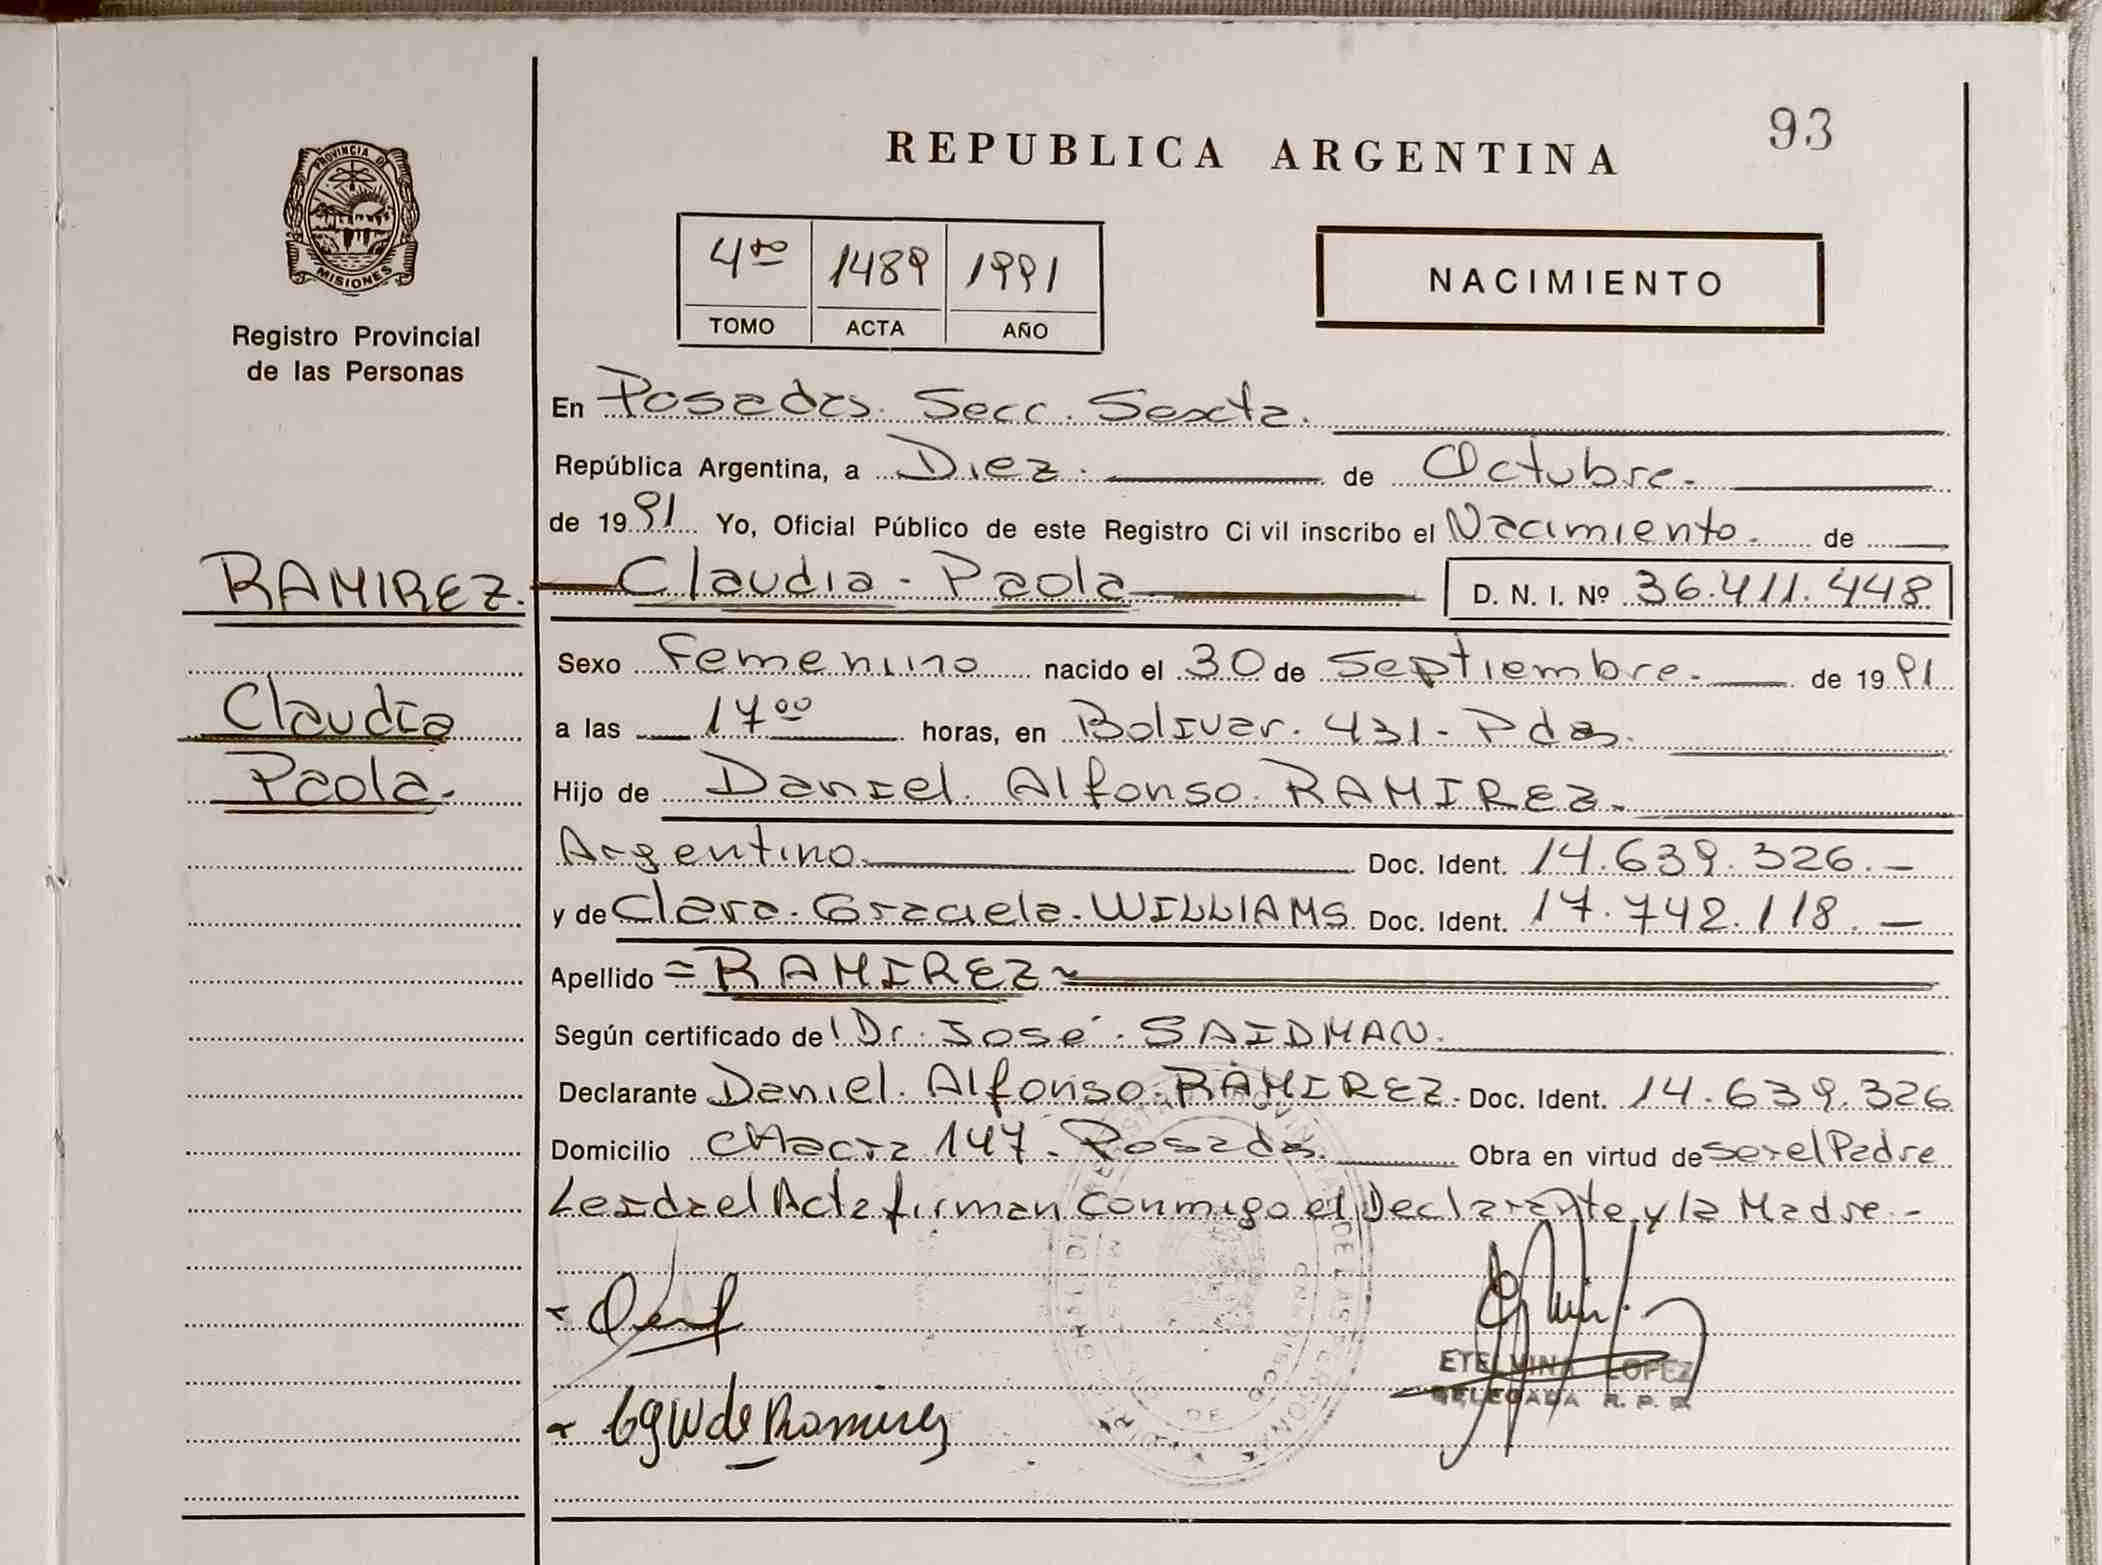 93
REPUBLICA ARGENTINA
PROVINCIA DE
MISIONES
Registro Provincial
de las Personas
4to 1489 1991
TOMO ACTA AÑO
NACIMIENTO
En Posadas. Secc. Sexta.
República Argentina, a Diez. de Octubre.
de 1991 Yo, Oficial Público de este Registro Civil inscribo el Nacimiento. de
RAMIREZ.
Claudia
Paola.
Claudia - Paola D. N. I. Nº 36.411.448
Sexo Femenino nacido el 30 de Septiembre. de 1991
a las 17 00 horas, en Bolivar. 431 - Pdas.
Hijo de Daniel. Alfonso. RAMIREZ.
Argentino. Doc. Ident. 14.639.326.-
y de Clara. Graciela. WILLIAMS Doc. Ident. 17.742.118.-
Apellido = RAMIREZ ~
Según certificado de Dr. José. SAIDMAN.
Declarante Daniel. Alfonso. RAMIREZ. Doc. Ident. 14.639.326
Domicilio Chacra 147. Posadas. Obra en virtud de ser el Padre
Leida el Acta firman conmigo el Declarante y la Madre.-
ETELVINA LOPEZ
DELEGADA R. P. P.
CgW de Ramirez